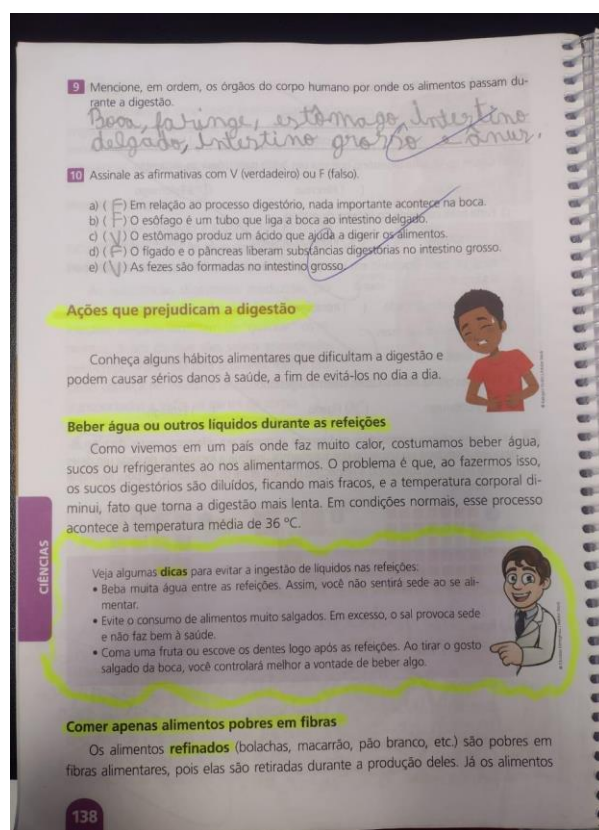 9 Mencione, em ordem, os órgãos do corpo humano por onde os alimentos passam du-
rante a digestão.
Boca, faringe, estômago, Intestino
delgado, Intestino grosso e ânus.
10 Assinale as afirmativas com V (verdadeiro) ou F (falso).
a) (F) Em relação ao processo digestório, nada importante acontece na boca.
b) (F) O esôfago é um tubo que liga a boca ao intestino delgado.
c) (V) O estômago produz um ácido que ajuda a digerir os alimentos.
d) (F) O fígado e o pâncreas liberam substâncias digestórias no intestino grosso.
e) (V) As fezes são formadas no intestino grosso.
Ações que prejudicam a digestão
Conheça alguns hábitos alimentares que dificultam a digestão e
podem causar sérios danos à saúde, a fim de evitá-los no dia a dia.
Beber água ou outros líquidos durante as refeições
Como vivemos em um país onde faz muito calor, costumamos beber água,
sucos ou refrigerantes ao nos alimentarmos. O problema é que, ao fazermos isso,
os sucos digestórios são diluídos, ficando mais fracos, e a temperatura corporal di-
minui, fato que torna a digestão mais lenta. Em condições normais, esse processo
acontece à temperatura média de 36 ºC.
CIÊNCIAS
Veja algumas dicas para evitar a ingestão de líquidos nas refeições:
• Beba muita água entre as refeições. Assim, você não sentirá sede ao se ali-
mentar.
• Evite o consumo de alimentos muito salgados. Em excesso, o sal provoca sede
e não faz bem à saúde.
• Coma uma fruta ou escove os dentes logo após as refeições. Ao tirar o gosto
salgado da boca, você controlará melhor a vontade de beber algo.
Comer apenas alimentos pobres em fibras
Os alimentos refinados (bolachas, macarrão, pão branco, etc.) são pobres em
fibras alimentares, pois elas são retiradas durante a produção deles. Já os alimentos
138